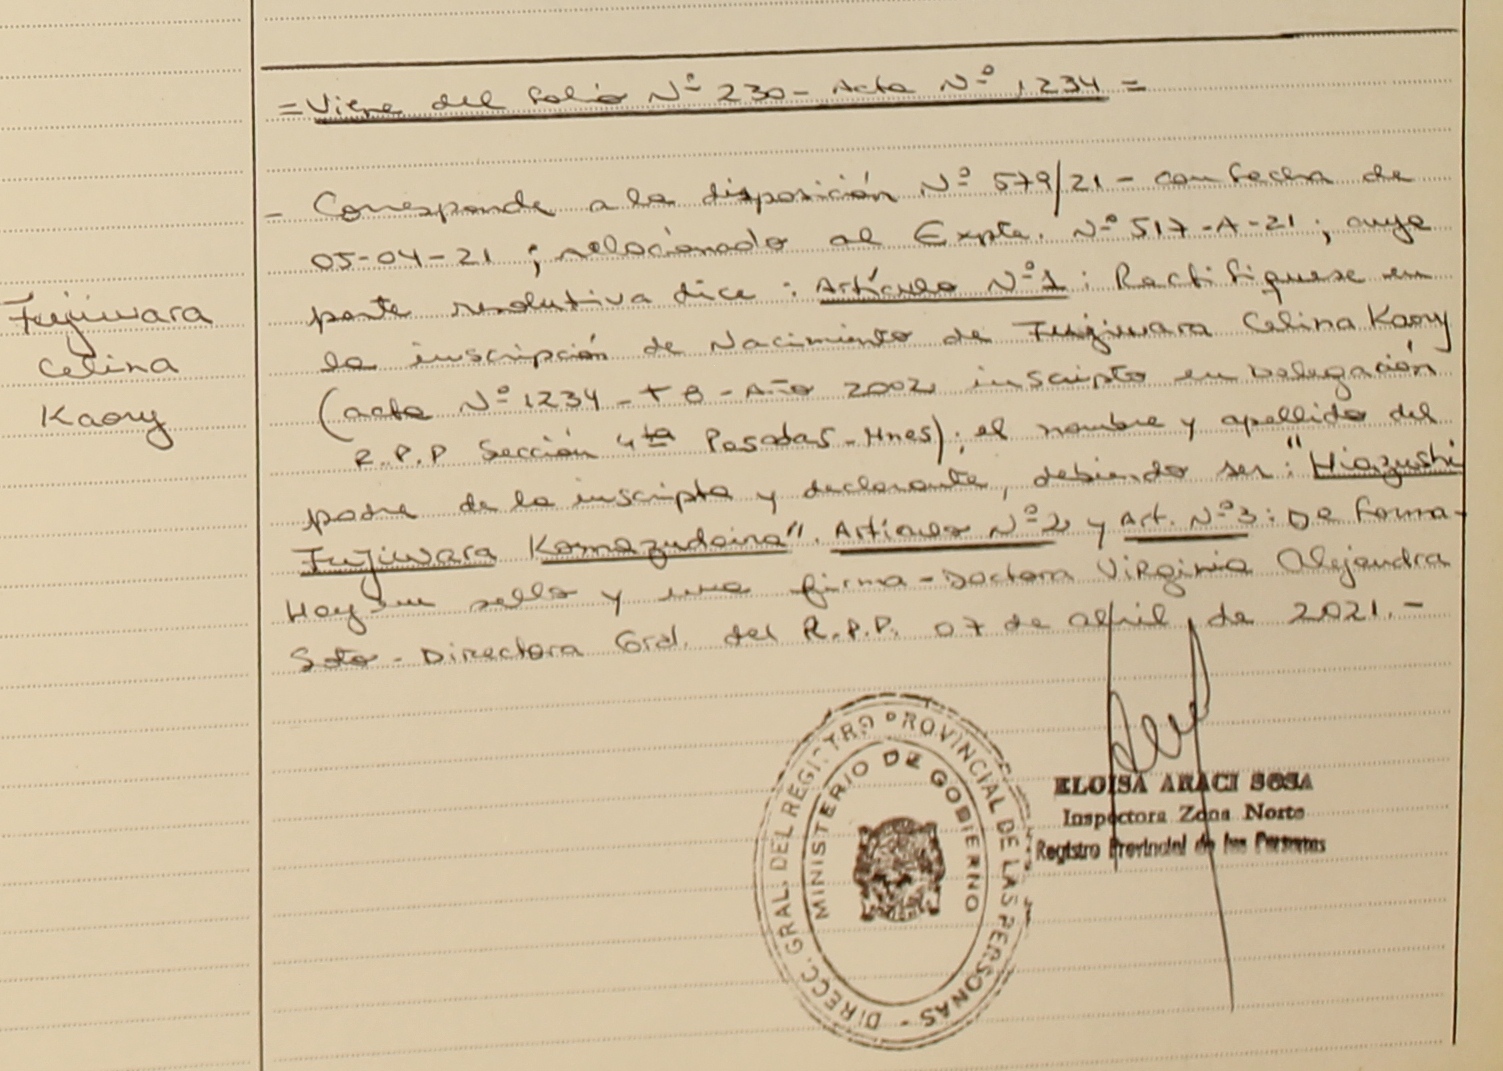 = Viene del folio Nº 230 - Acta Nº 1234 =
- Corresponde a la disposición Nº 579/21 - con fecha de
05-04-21 ; relacionado al Expte. Nº 517-A-21 ; cuya
parte resolutiva dice : Artículo Nº 1 : Rectifiquese en
la inscripción de Nacimiento de Fujiwara Celina Kaory
(acta Nº 1234 - T 8 - Año 2002 inscripto en Delegación
R.P.P Sección 4ta Posadas - Mnes) ; el nombre y apellido del
padre de la inscripta y declarante, debiendo ser : "Hiazushi
Fujiwara Komazudaira". Artículo Nº 2 y Art. Nº 3 : De forma -
Hay un sello y una firma - Doctora Virginia Alejandra
Soto - Directora Gral. del R.P.P. 07 de abril de 2021.-
Fujiwara
Celina
Kaory
DIRECC. GRAL. DEL REGISTRO PROVINCIAL DE LAS PERSONAS -
MINISTERIO DE GOBIERNO
ELOISA ARACI SOSA
Inspectora Zona Norte
Registro Provincial de las Personas